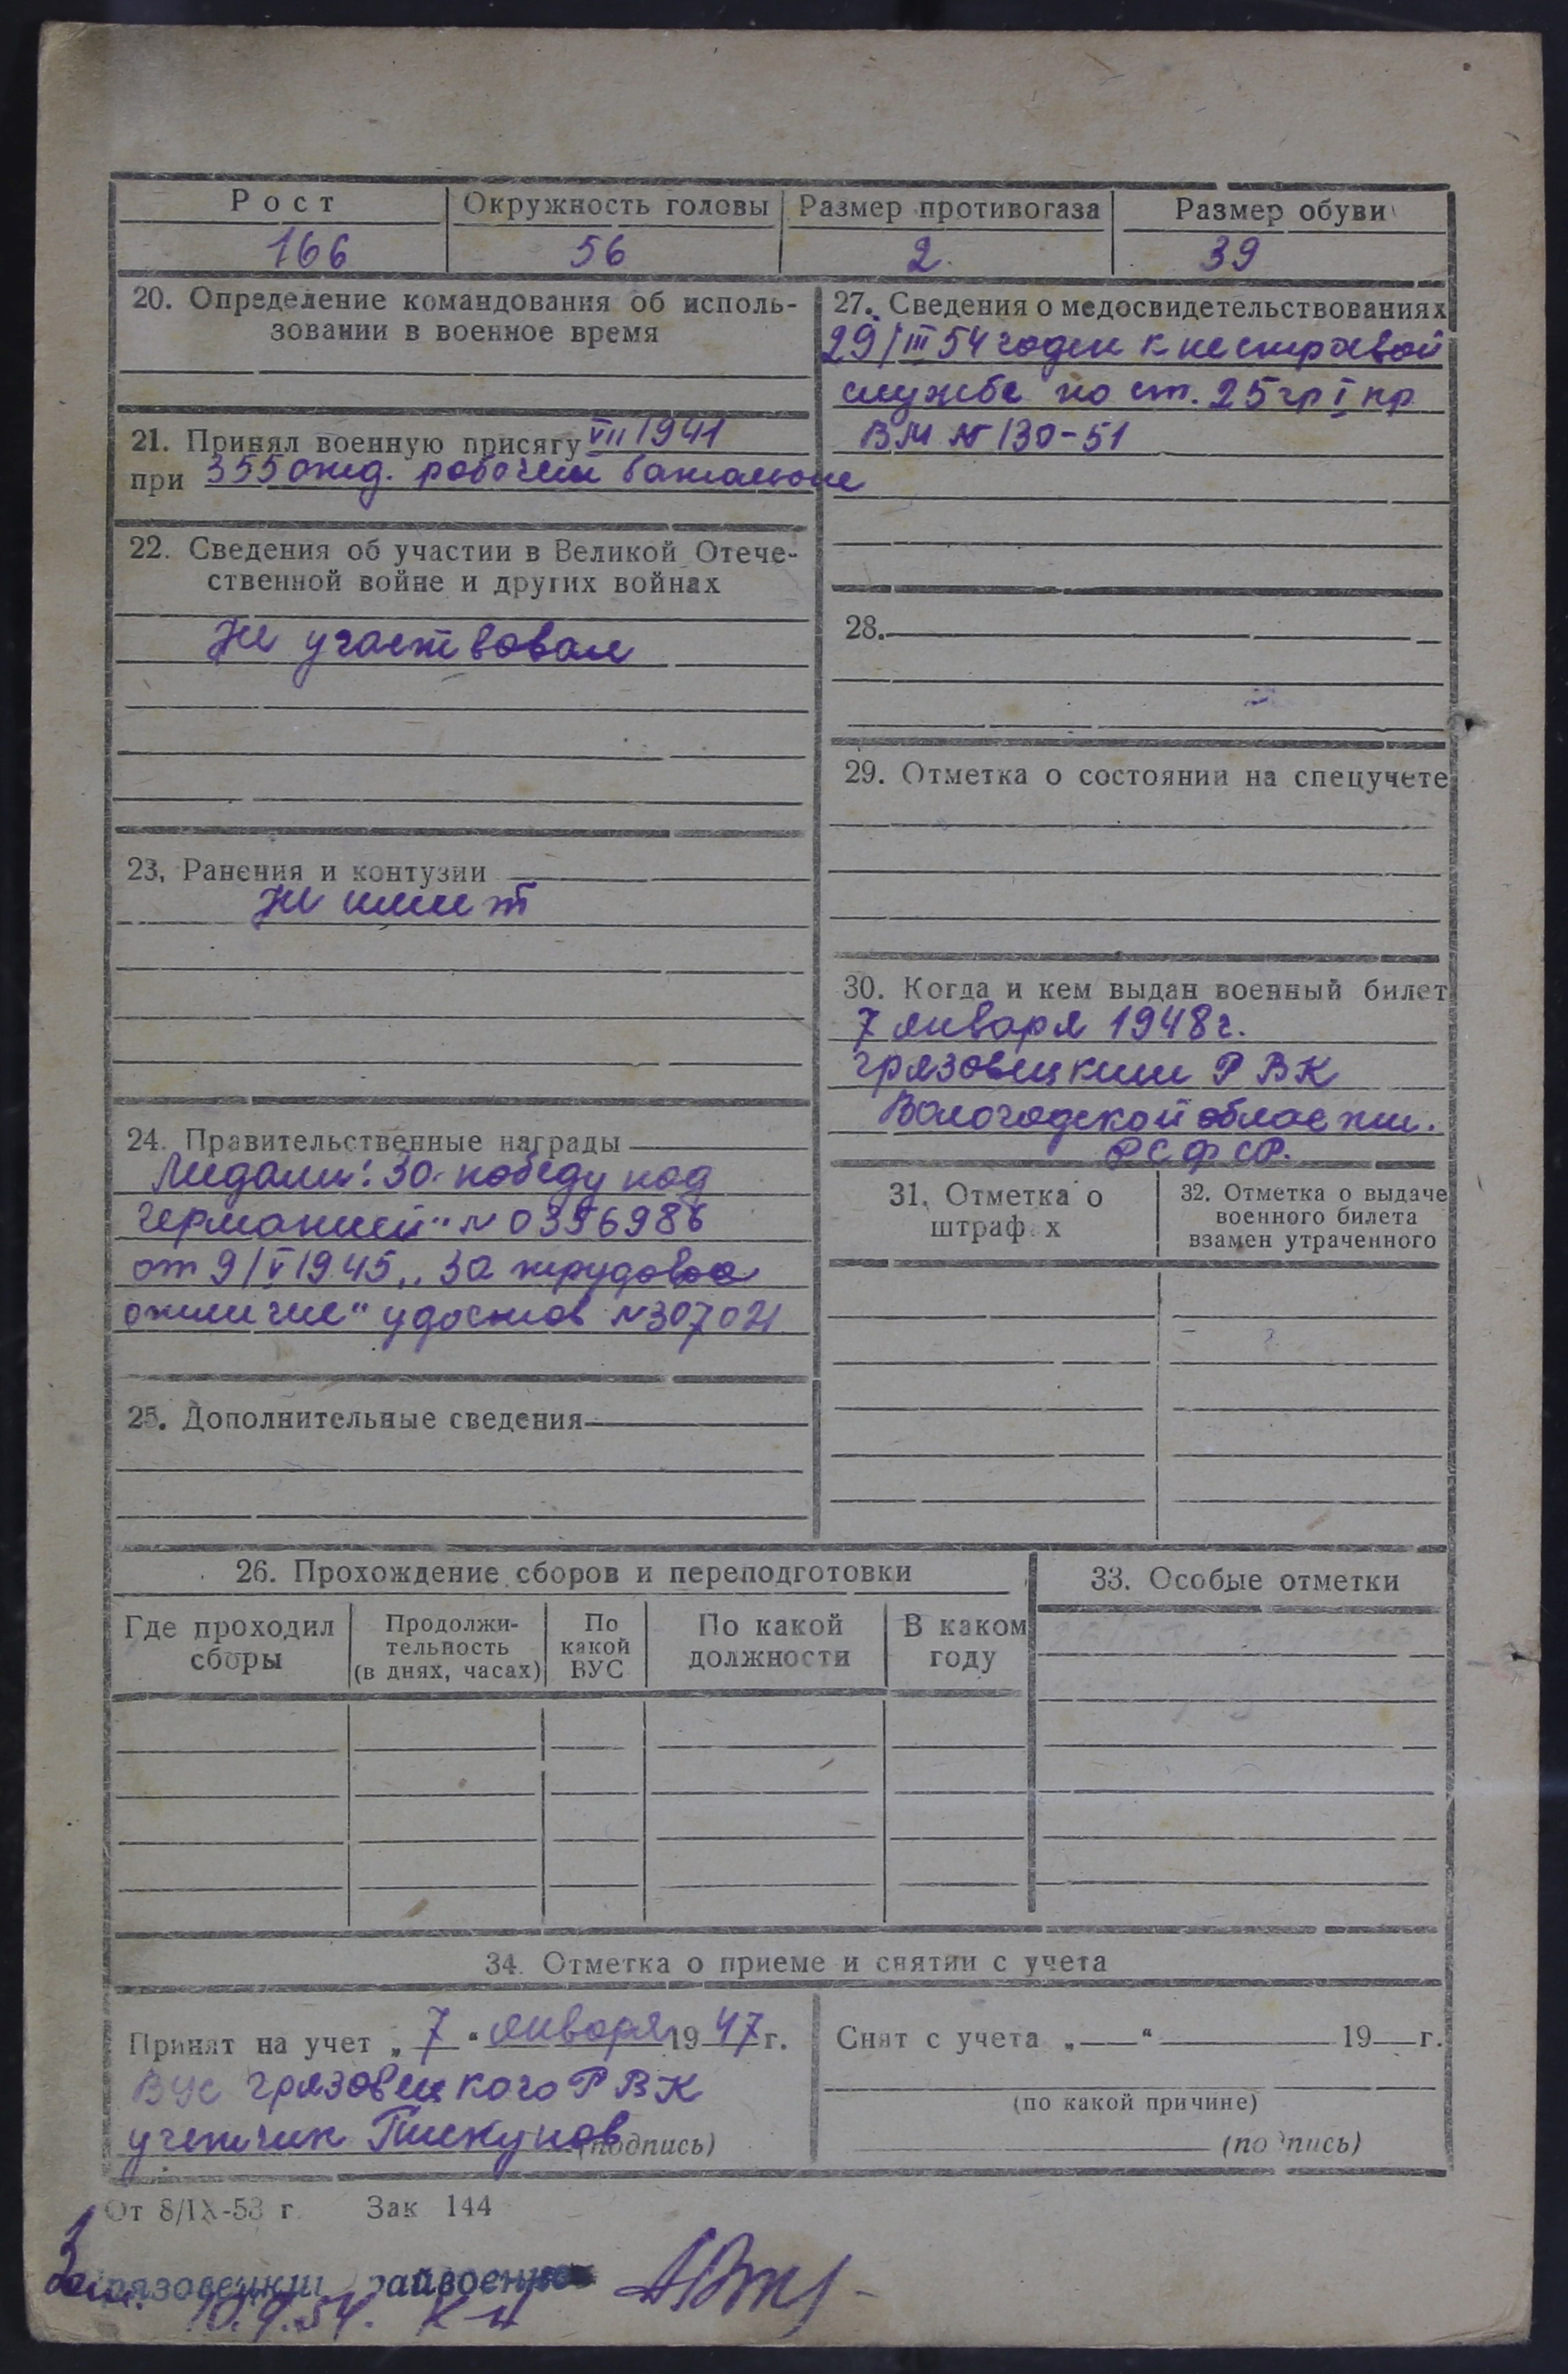 Рост Окружность головы Размер противогаза Размер обуви
166 56 2. 39
20. Определение командования об исполь-
зовании в военное время
21. Принял военную присягу VII 1941
при 355 отд. рабочем батальоне
22. Сведения об участии в Великой Отече-
ственной войне и других войнах
Не участвовал
23. Ранения и контузии
Не имеет
24. Правительственные награды
Медали: За победу над
Германией" № 0396986
от 9/V 1945 „За трудовое
отличие" удостов №307021
25. Дополнительные сведения
27. Сведения о медосвидетельствованиях
29/III 54 годен к нестроевой
службе по ст. 25 гр I пр
ВМ № 130-51
28.
29. Отметка о состоянии на спецучете
30. Когда и кем выдан военный билет
7 января 1948 г.
Грязовецким РВК
Вологодской области.
РСФСР.
31. Отметка о
штраф х
32. Отметка о выдаче
военного билета
взамен утраченного
26. Прохождение сборов и переподготовки
Где проходил
сборы
Продолжи-
тельность
(в днях, часах)
По
какой
ВУС
По какой
должности
В каком
году
33. Особые отметки
34. Отметка о приеме и снятии с учета
Принят на учет „ 7 “ января 19 47 г.
ВУС Грязовецкого РВК
учетчик Пискунов (подпись)
Снят с учета „ “ 19 г.
(по какой причине)
(подпись)
От 8/IX-53 г. Зак 144
10.9.54. К-н